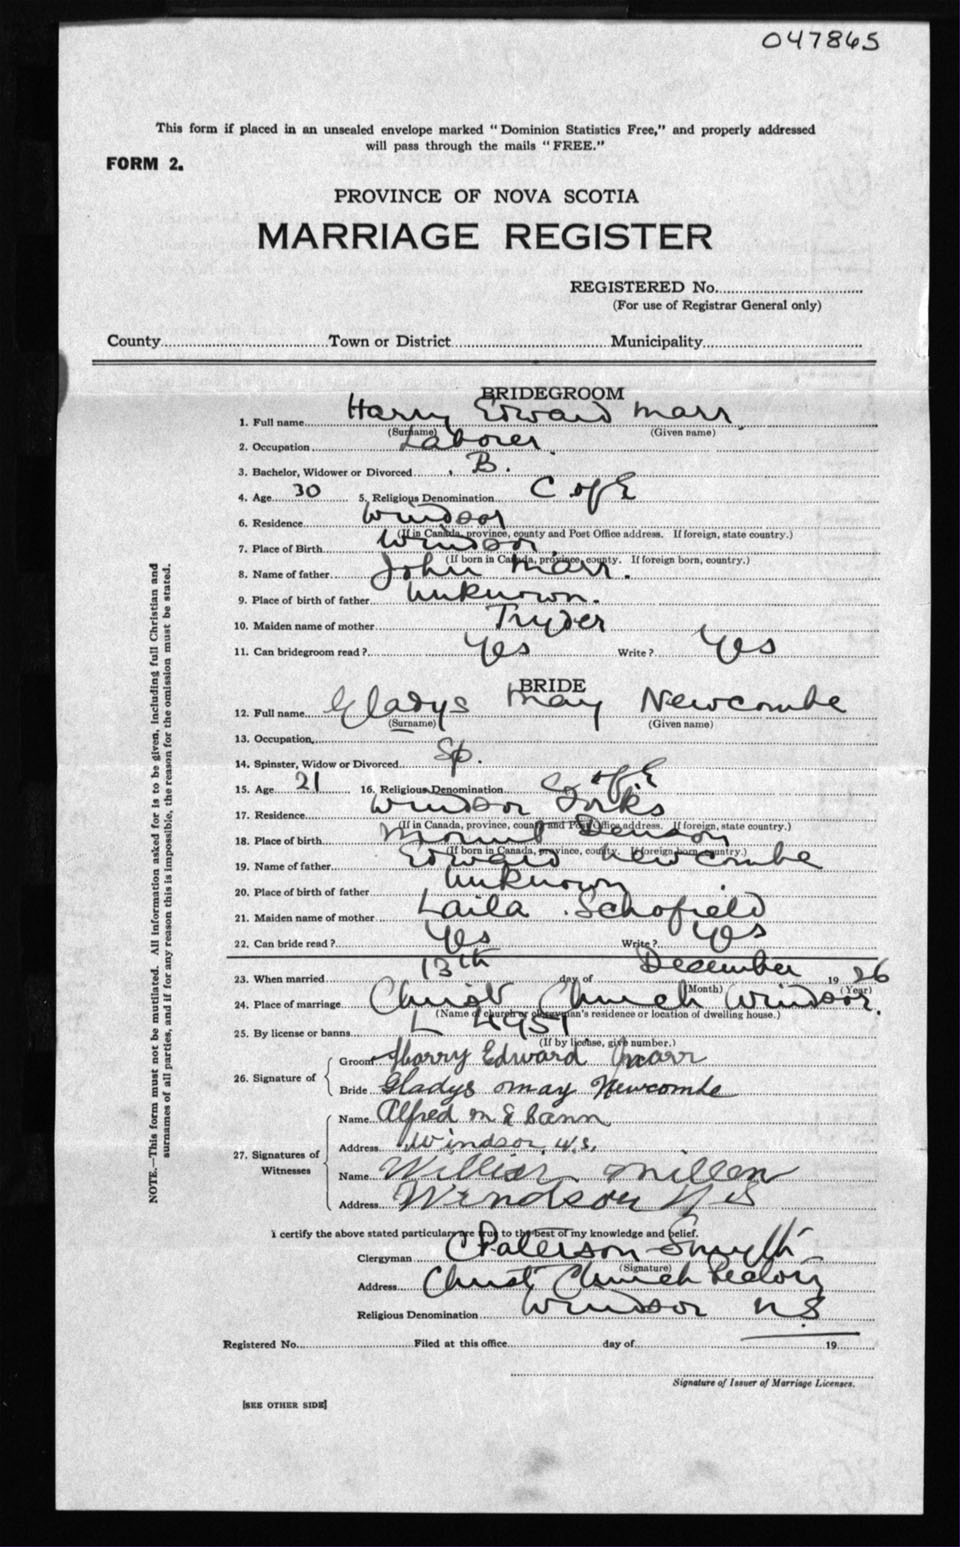 047865
This form if placed in an unsealed envelope marked "Dominion Statistics Free," and properly addressed
will pass through the mails "FREE."
FORM 2.
PROVINCE OF NOVA SCOTIA
MARRIAGE REGISTER
REGISTERED No.
(For use of Registrar General only)
County Town or District Municipality
BRIDEGROOM
1. Full name Harry Edward Marr
(Surname) (Given name)
2. Occupation Laborer
3. Bachelor, Widower or Divorced B.
4. Age 30 5. Religious Denomination C of E
6. Residence Windsor
(If in Canada, province, county and Post Office address. If foreign, state country.)
7. Place of Birth Windsor
(If born in Canada, province, county. If foreign born, country.)
8. Name of father John Marr.
9. Place of birth of father Unknown.
10. Maiden name of mother Tryder
11. Can bridegroom read? Yes Write? Yes
BRIDE
12. Full name Gladys May Newcombe
(Surname) (Given name)
13. Occupation
14. Spinster, Widow or Divorced Sp.
15. Age 21 16. Religious Denomination C of E
17. Residence Windsor Forks
(If in Canada, province, county and Post Office address. If foreign, state country.)
18. Place of birth Mount Denson
(If born in Canada, province, county. If foreign born, country.)
19. Name of father Edward Newcombe
20. Place of birth of father Unknown
21. Maiden name of mother Laila Schofield
22. Can bride read? Yes Write? Yes
23. When married 13th day of December 19 26
(Month) (Year)
24. Place of marriage Christ Church Windsor.
(Name of church or clergyman's residence or location of dwelling house.)
25. By license or banns L 4951
(If by license, give number.)
26. Signature of
Groom Harry Edward Marr
Bride Gladys May Newcombe
27. Signatures of Witnesses
Name Alfred M
Address Windsor, N.S.
Name Millen
Address Windsor N S
I certify the above stated particulars are true to the best of my knowledge and belief.
Clergyman C Paterson Smyth
(Signature)
Address Christ Church Rectory
Religious Denomination Windsor N S
Registered No. Filed at this office day of 19
Signature of Issuer of Marriage Licenses.
[SEE OTHER SIDE]
NOTE.—This form must not be mutilated. All information asked for is to be given, including full Christian and
surnames of all parties, and if for any reason this is impossible, the reason for the omission must be stated.